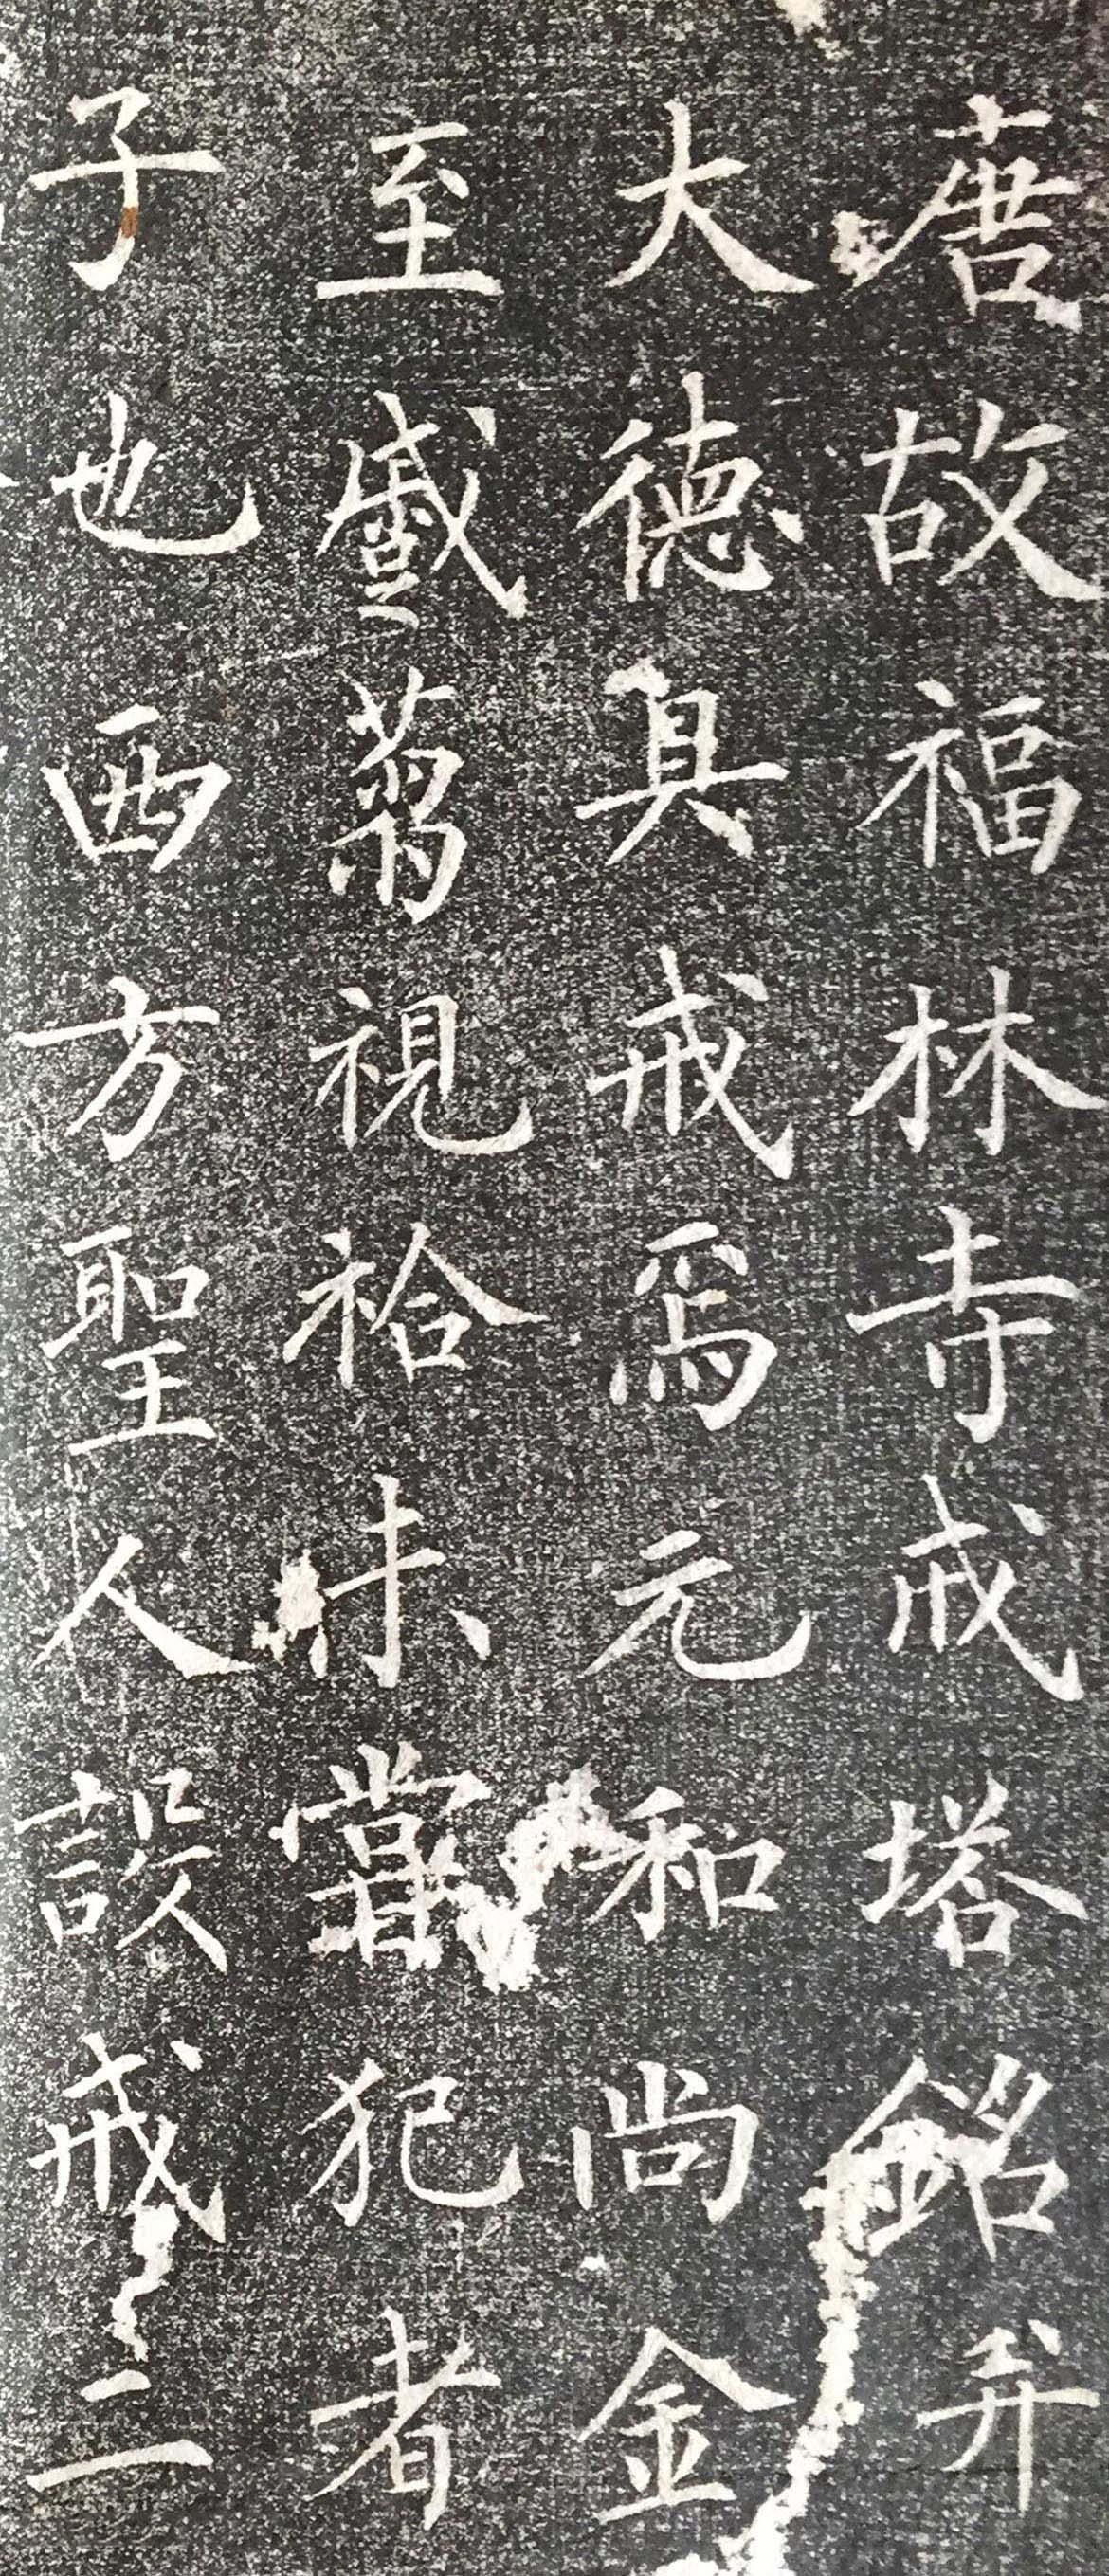 唐故福林寺戒塔銘并
大德具戒焉元和尚金
至戲翦視袷未嘗犯者
子也西方聖人設戒二